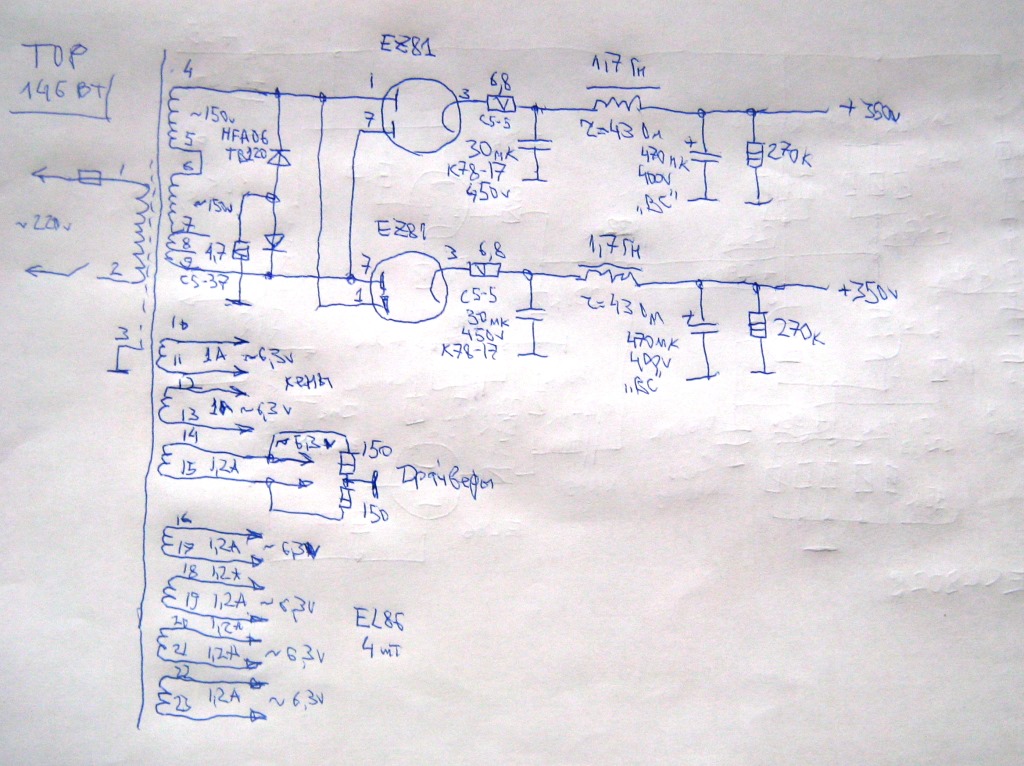 ТОР
146 ВТ
4
~150v
5
6
~150v
7
8
9
HFA06
TB120
4,7
C5-37
1
~220v
2
3
EZ81
1
7
3
6,8
C5-5
30мк
К78-17
450v
1,7 Гн
r=43 Ом
470мк
400v
„BC"
270к
+350v
EZ81
7
1
3
6,8
C5-5
30мк
450v
К78-17
1,7 Гн
r=43 Ом
470мк
400v
„BC"
270к
+350v
10
11 1А ~6,3v
12
13 1А ~6,3v
14
15 1,2А
~6,3v
150
150
Драйверы
16
17 1,2А ~6,3v
18 1,2А
19 1,2А ~6,3v
20 1,2А
21 1,2А ~6,3v
22
23 1,2А ~6,3v
EL86
4 шт